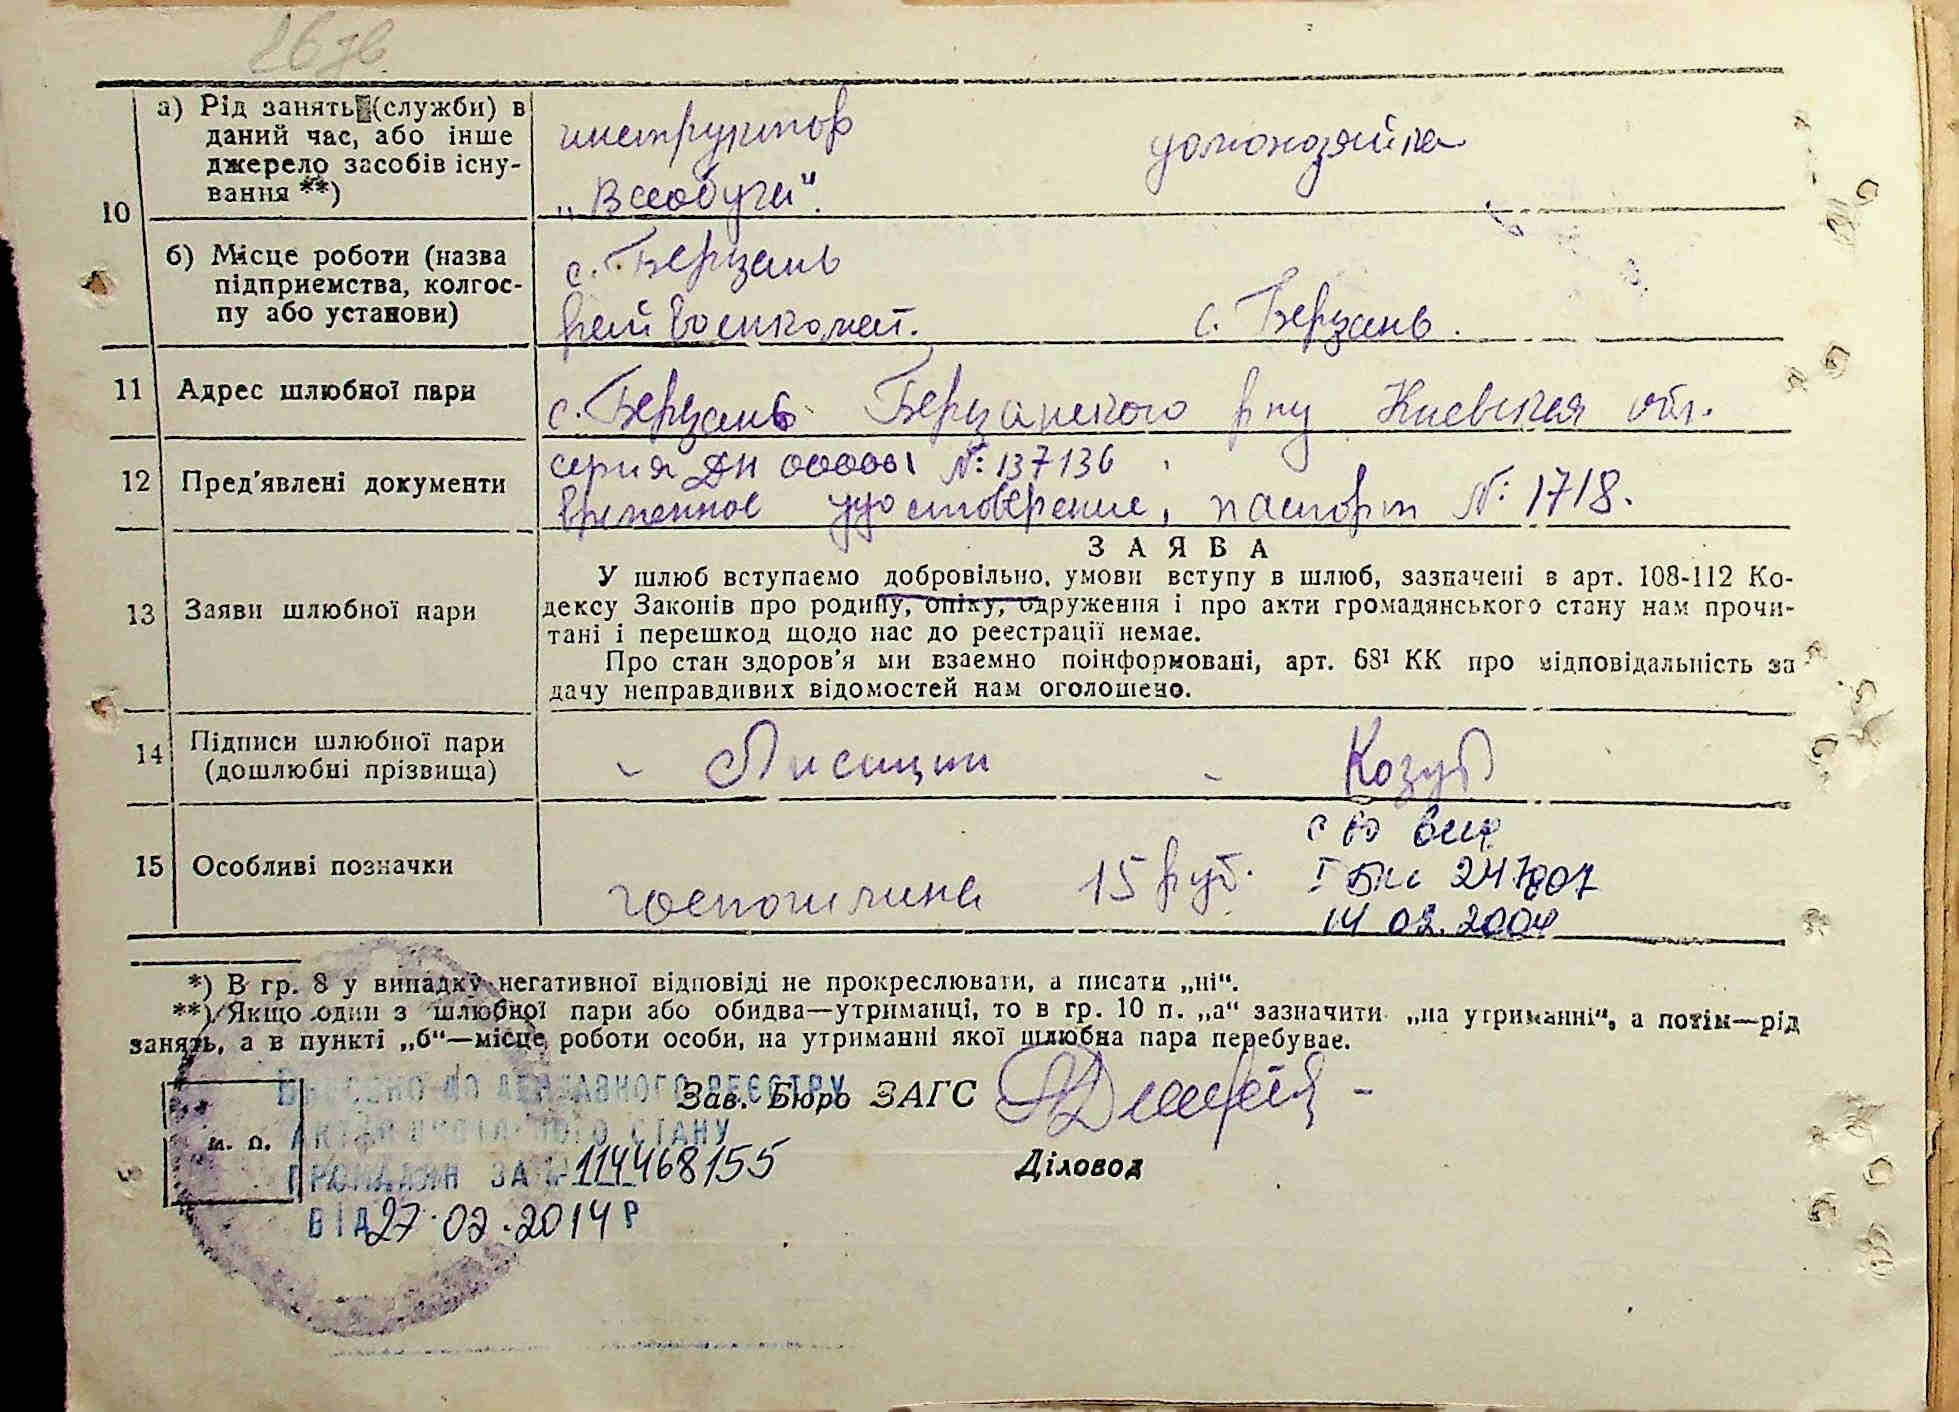 26 зв
а) Рід занять (служби) в
даний час, або інше
джерело засобів існу-
вання **)
инструктор
„Всеобуча".
домохозяйка
10
б) Місце роботи (назва
підприємства, колгос-
пу або установи)
с. Березань
рай военкомат.
с. Березань.
11 Адрес шлюбної пари
с. Березань Березанского р-ну Киевская обл.
12 Пред'явлені документи
серия ДН 000001 №: 137136
временное удостоверение, паспорт №: 1718.
13 Заяви шлюбної пари
ЗАЯВА
У шлюб вступаємо добровільно, умови вступу в шлюб, зазначені в арт. 108-112 Ко-
дексу Законів про родину, опіку, одруження і про акти громадянського стану нам прочи-
тані і перешкод щодо нас до реєстрації немає.
Про стан здоров'я ми взаємно поінформовані, арт. 68¹ КК про відповідальність за
дачу неправдивих відомостей нам оголошено.
14 Підписи шлюбної пари
(дошлюбні прізвища)
Лисицин
Козуб
15 Особливі позначки
госпошлина 15 руб.
І БК 247807
14 02. 2004
*) В гр. 8 у випадку негативної відповіді не прокреслювати, а писати „ні".
**) Якщо один з шлюбної пари або обидва—утриманці, то в гр. 10 п. „а" зазначити „на утриманні", а потім—рід
занять, а в пункті „б"—місце роботи особи, на утриманні якої шлюбна пара перебуває.
Зав. Бюро ЗАГС
Діловод
м. п.
ВНЕСЕНО ДО ДЕРЖАВНОГО РЕЄСТРУ
АКТІВ ЦИВІЛЬНОГО СТАНУ
ГРОМАДЯН ЗА № 114468155
ВІД 27.02.2014 Р